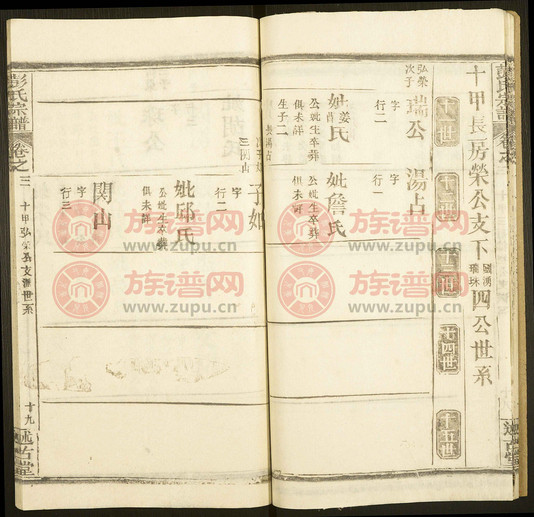 十甲長房榮公支下
四公世系
十一世
十二世
十三世
十四世
十五世
弘榮
次子
瑞公
字
行二
妣姜氏
公妣生卒葬
俱未詳
生子二
長湯占
次子如
三関山
湯占
字
行一
妣詹氏
公妣生卒葬
俱未詳
子如
字
行二
妣邱氏
公妣生卒葬
俱未詳
関山
字
行三
彭氏宗譜
卷之三
十甲弘榮公支派世系
十九
述古堂
族谱网
www.zupu.cn
族谱网
www.zupu.cn
族谱网
www.zupu.cn
族谱网
www.zupu.cn